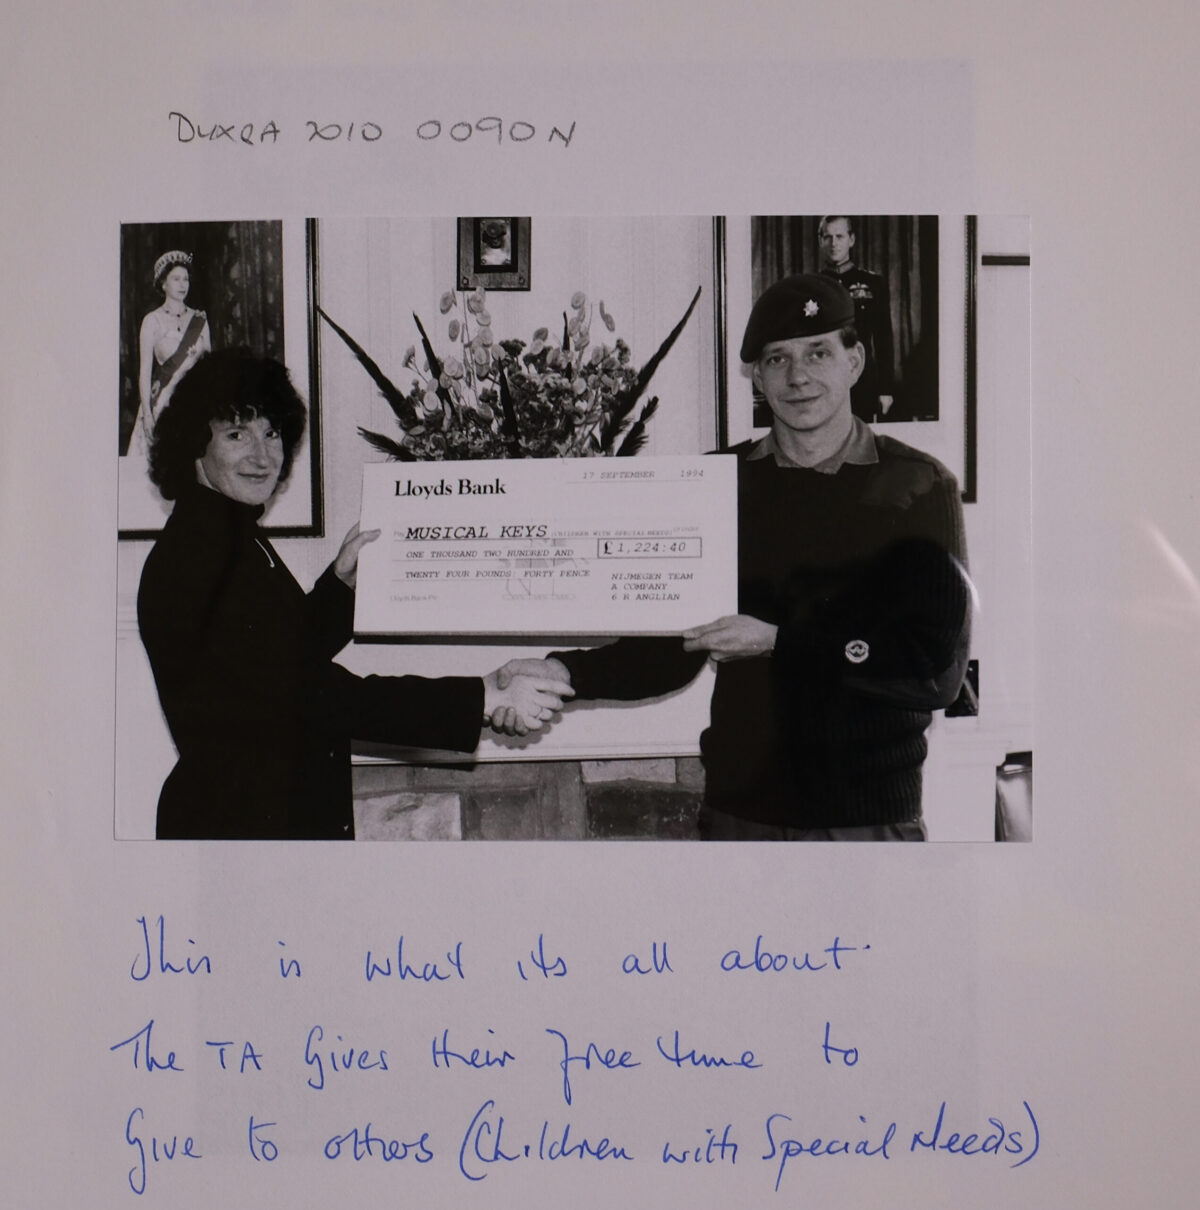 DUXRA 2010 0090N
17 SEPTEMBER 1994
Lloyds Bank
MUSICAL KEYS (CHILDREN WITH SPECIAL NEEDS)
ONE THOUSAND TWO HUNDRED AND
£ 1,224:40
TWENTY FOUR POUNDS: FORTY PENCE
NIJMEGEN TEAM
A COMPANY
6 R ANGLIAN
Lloyds Bank Plc
This is what its all about.
The TA Gives their free time to
Give to others (Children with Special Needs)